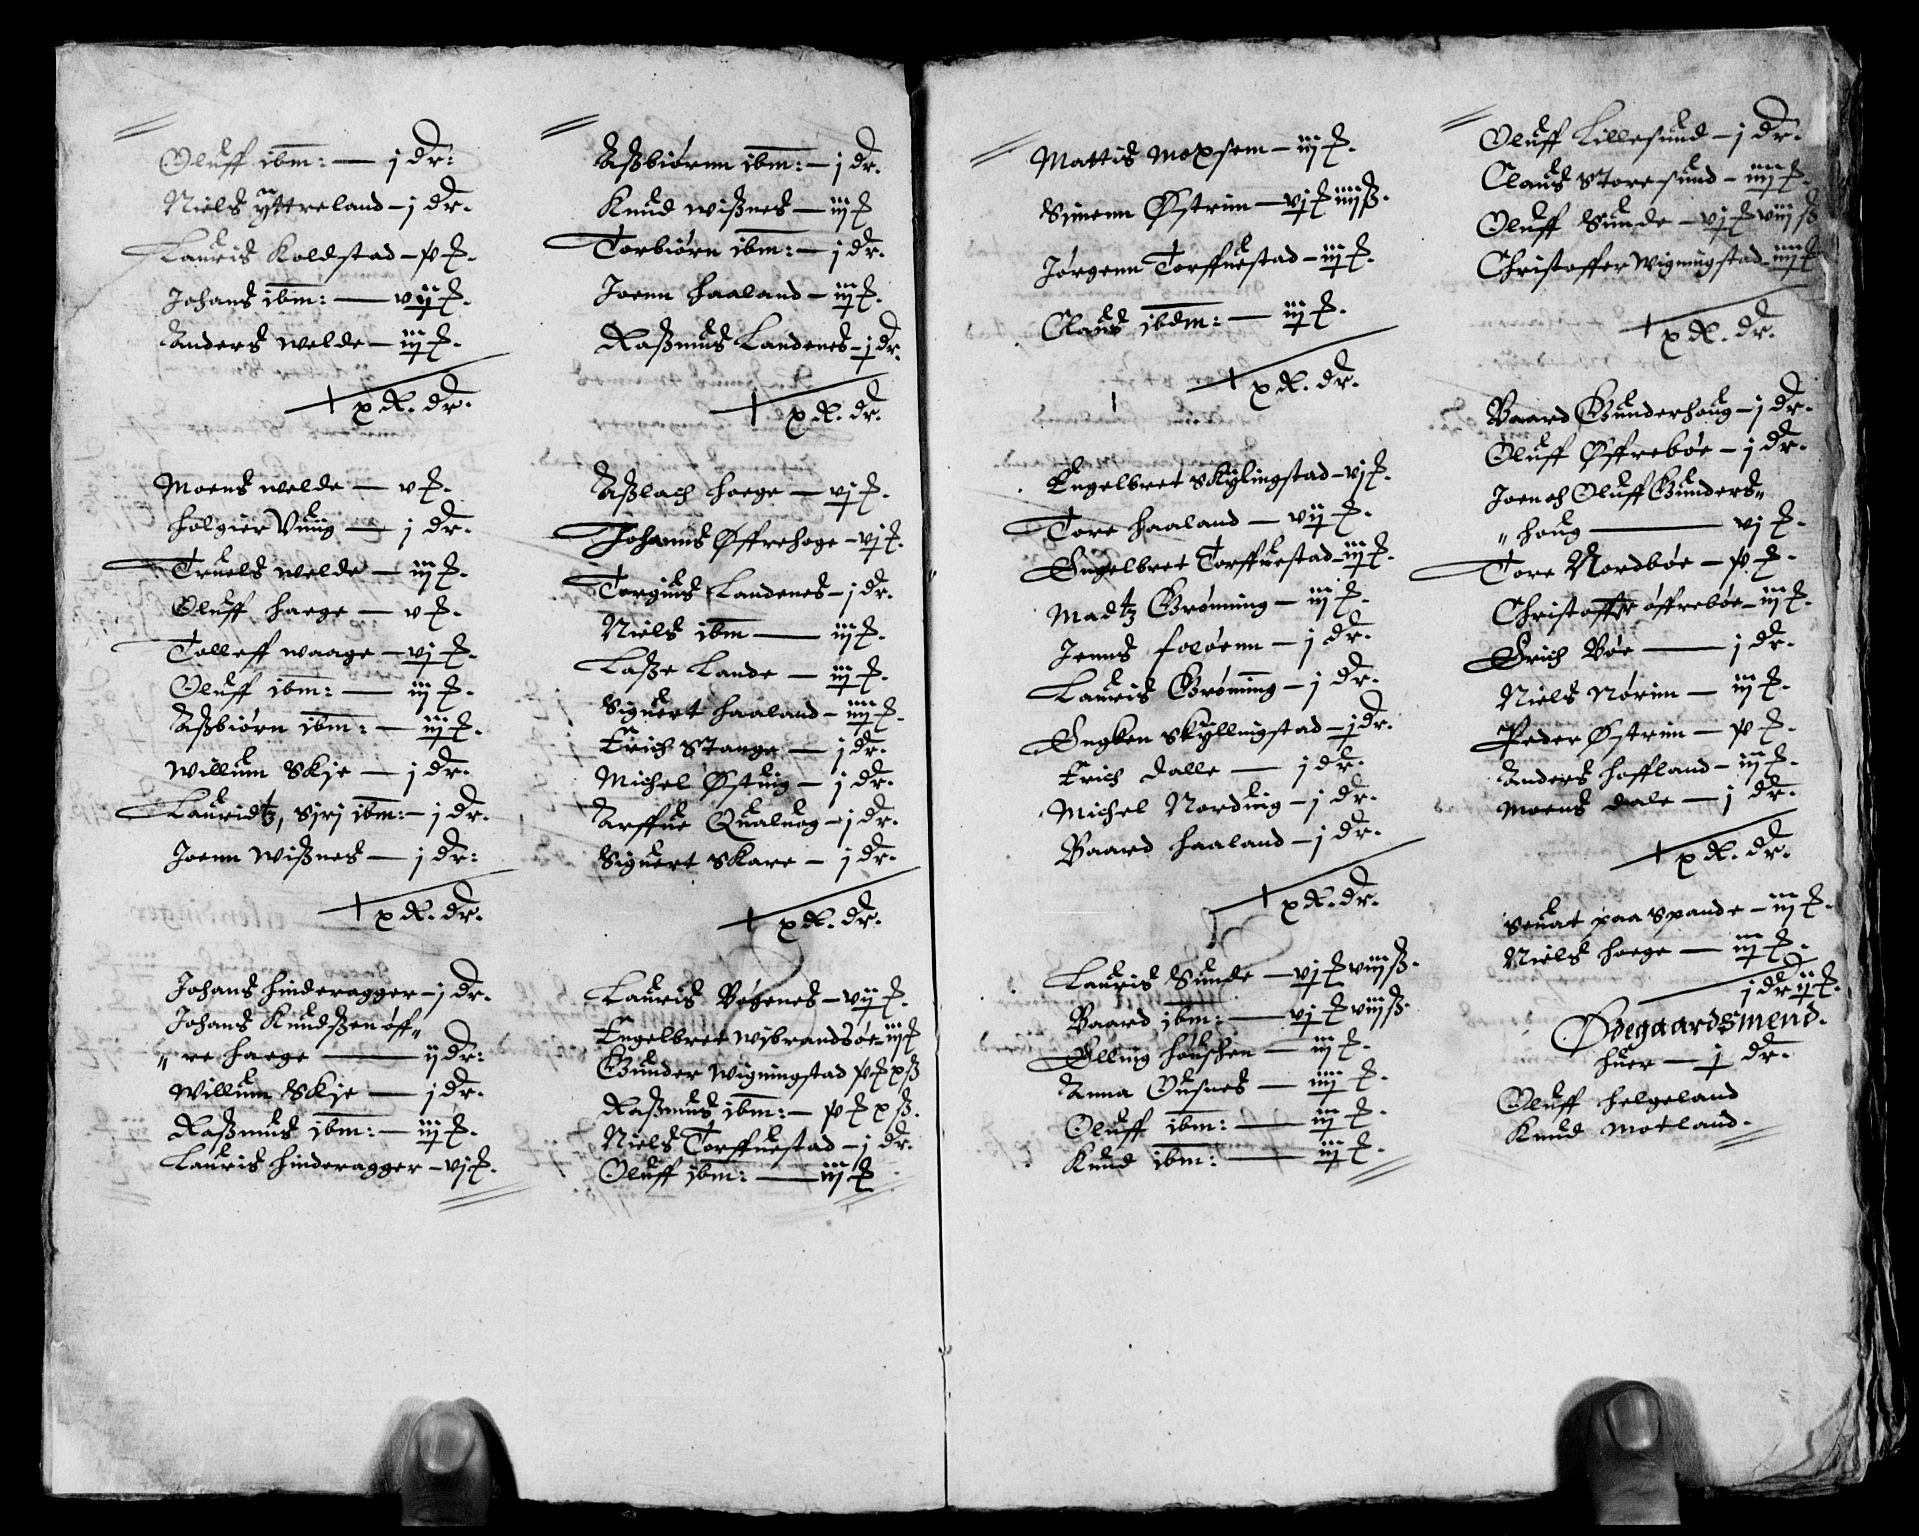 Oluff ibm: — j dr:
Niels Yttreland — j dr.
Lauris Koldstad — pt.
Johans ibm: — vij t.
Anders Welde — iiij t.
x R. dr.
Moens Welde — v t.
Holgier Vuig — j dr.
Truels Welde — iiij t.
Oluff Haege — v t.
Tolleff Waage — vj t.
Oluff ibm: — iiij t.
Aßbiørn ibm: — iiij t.
Willum Skje — j dr.
Lauridtz, Sirj ibm: — j dr.
Joenn Wißnes — j dr:
x R. dr.
Johans Hinderagger — j dr.
Johans Knudßen øf„
„re Haege — ij dr:
Willum Skje — j dr.
Raßmus ibm: — iiij t.
Lauris Hinderagger — vj t.
Aßbiørnn ibm: — j dr.
Knud Wißnes — iiij t
Torbiørn ibm: — j dr.
Joenn Haaland — iiij t.
Raßmus Landenes — j dr.
x R. dr.
Aßlach Hoege — vj t.
Johanns Øffrehoge — vj t.
Torgius Landenes — j dr.
Niels ibm — iiij t.
Laße Lande — iiij t.
Siguert Haaland — iiij t.
Erich Stange — j dr.
Michel Østuig — j dr.
Arffue Qualuog — j dr.
Siguert Skare — j dr.
x R. dr.
Lauris Bøgenes — vij t.
Engelbret Wibrandsøe iiij t
Gunder Wigningstad pt x ß
Raßmus ibm: — pt x ß.
Niels Torffuestad — j dr.
Oluff ibm: — iiij t
Mattis Moxsem — iiij t.
Simenn Østrim — vj t iiij ß.
Jørgenn Torffuestad — iiij t.
Claus ibdm: — iiij t.
x R. dr.
Engelbret Skylingstad — vj t.
Tore Haaland — vij t.
Engelbret Torffuestad — iiij t.
Madtz Grønning — iiij t.
Jenns Foløenn — j dr.
Lauris Grøning — j dr.
Engken Skyllingstad — j dr.
Erich Dalle — j dr.
Michel Norduig — j dr.
Baard Haaland — j dr.
x R. dr.
Lauris Sunde — vj t viij ß.
Baard ibm: — vj t viij ß.
Elling Houschen — iiij t.
Anna Ousnes — iiij t.
Oluff ibm: — iiij t.
Knud ibm: — iiij t.
Oluff Lillesund — j dr.
Claus Storesund — iiij t.
Oluff Sunde — vj t viij ß
Christoffer Wigningstad — iiij t
x R. dr.
Baard Gunderhoug — j dr.
Oluff Øffrebøe — j dr.
Joen och Oluff Gunders„
„houg — vj t.
Tore Nordbøe — pt.
Christoffer Øffrebøe — iiij t.
Erich Bøe — j dr.
Niels Nørim — iiij t.
Peder Østrim — pt.
Anders Haffland — iiij t.
Moens Dale — j dr.
x R. dr.
Seuat paa Spande — iiij t.
Niels Hoege — iiij t.
j dr ij t.
Ødegaardsmend.
huer — j dr.
Oluff Helgeland
Knud Motland.